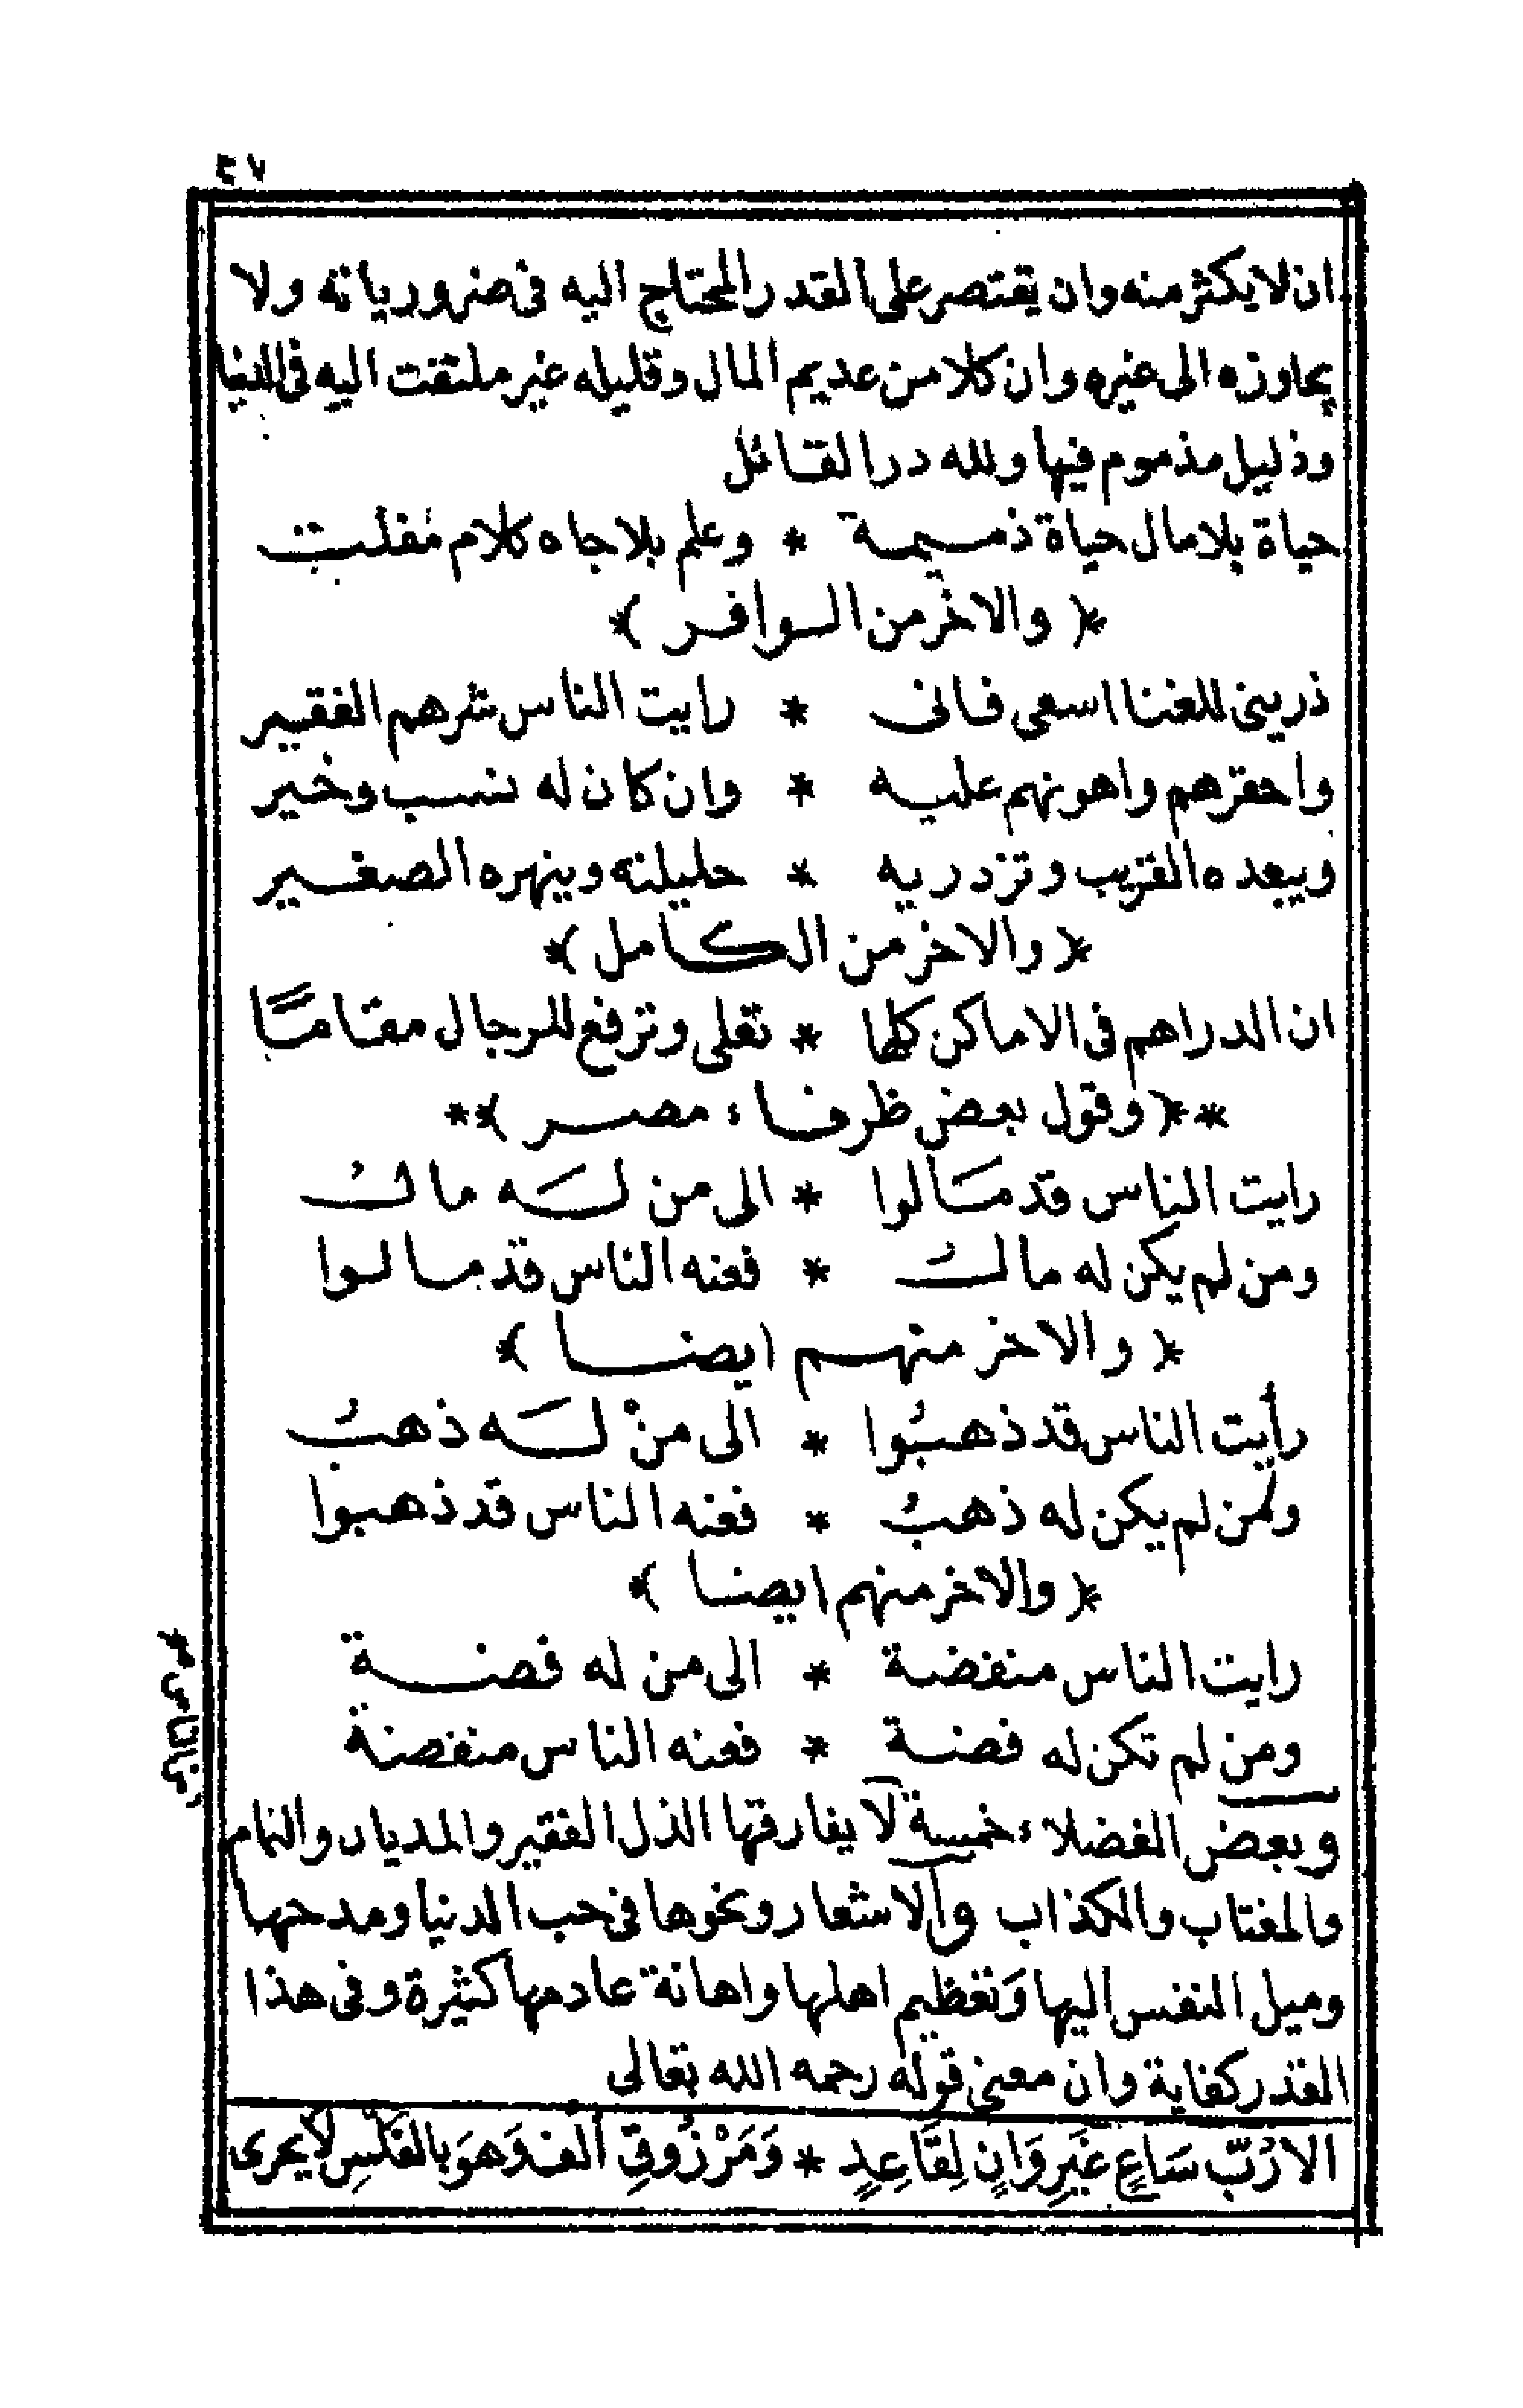 ٤٧
ان لا يكثر منه وان يقتصر على القدر المحتاج اليه فى ضرورياته ولا
يجاوزه الى غيره وان كلا من عديم المال وقليله غير ملتفت اليه فى الدنيا
وذليل مذموم فيها ولله در القائل
حياة بلا مال حياة ذميمة * وعلم بلا جاه كلام مفلت
*( والاخر من الوافر )*
ذرينى للغنا اسعى فانى * رايت الناس شرهم الفقير
واحقرهم واهونهم عليه * وان كان له نسب وخير
ويبعده القريب وتزدريه * حليلته وينهره الصغير
*( والاخر من الكامل )*
ان الدراهم فى الاماكن كلها * تعلى وترفع للرجال مقامًا
**( وقول بعض ظرفاء مصر )**
رايت الناس قد مَالوا * الى من لَه مالُ
ومن لم يكن له مالُ * فعنه الناس قد مالوا
*( والاخر منهم ايضا )*
رأيت الناس قد ذهبُوا * الى منْ لَه ذهبُ
ومن لم يكن له ذهبُ * فعنه الناس قد ذهبوا
*( والاخر منهم ايضا )*
رايت الناس منفضة * الى من له فضة
ومن لم تكن له فضة * فعنه الناس منفضة
وبعض الفضلاء خمسة لا يفارقها الذل الفقير والمديان والنمام
والمغتاب والكذاب والاشعار ونحوها فى حب الدنيا ومدحها
وميل النفس اليها وَتعظيم اهلها واهانة عادمها كثيرة وفى هذا
القدر كفاية وان معنى قوله رحمه الله تعالى
الا رُبّ سَاعٍ غَيرِ وَانٍ لِقَاعِدٍ * وَمَرْزُوقِ اَلف وَهوَ بالفَلْسِ لاَ يحرى